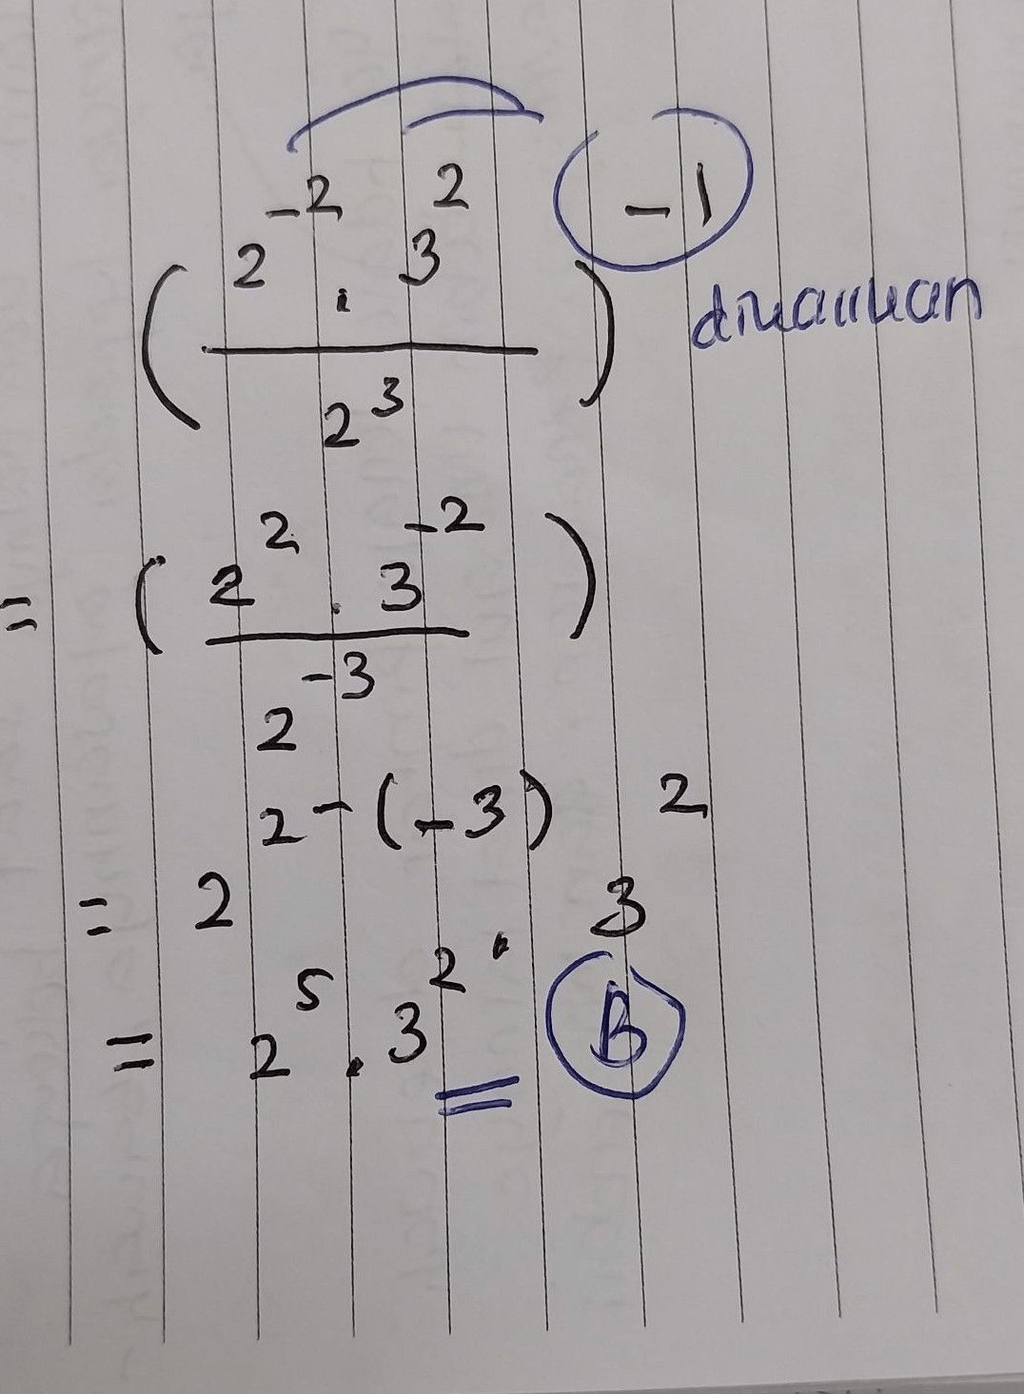 (2^-2 . 3^2 / 2^3)^-1 dikalikan
= (2^2 . 3^-2 / 2^-3)
= 2^2-(-3) . 3^2
= 2^5 . 3^2 B